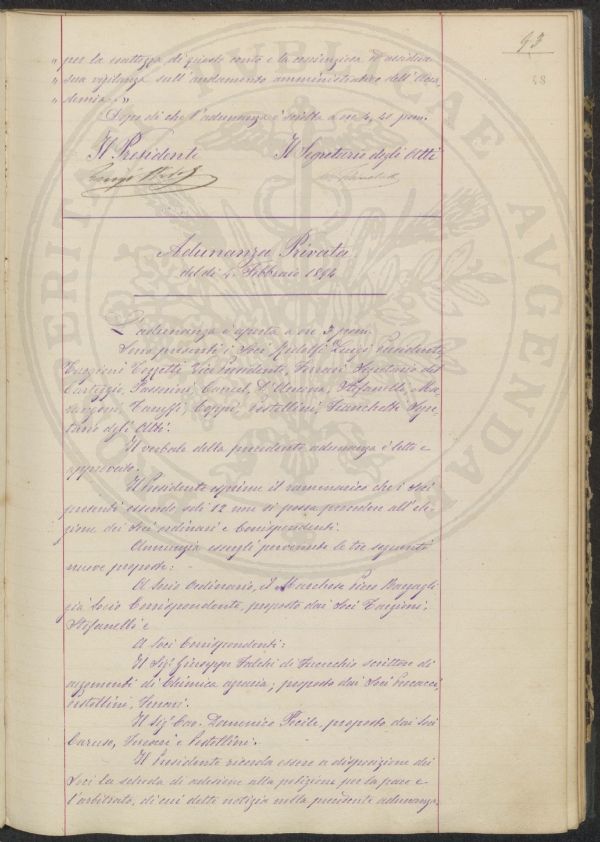 93
38
" per la esattezza di questo conto e la coscienziosa ed assidua
" sua vigilanza sull'andamento amministrativo dell'Acca-
" demia. "
Dopo di che l'adunanza è sciolta a ore 4, 40 pom.
Il Presidente Il Segretario degli Atti
Luigi
Adunanza Privata
del dì 4 Febbraio 1894
L'adunanza è aperta a ore 3 pom.
Sono presenti i Soci Ridolfi Luigi Presidente,
Targioni Tozzetti Vice Presidente, Ferrari Segretario del
Carteggio, Passerini, Caruel, D'Ancona, Stefanelli, Ma-
rangoni, Coppi, Pestellini, Franchetti Segre-
tario degli Atti.
Il verbale della precedente adunanza è letto e
approvato.
Il Presidente esprime il rammarico che i Soci
presenti essendo soli 12 non si possa procedere all'ele-
zione dei Soci ordinari e Corrispondenti.
Annunzia essergli pervenute le tre seguenti
nuove proposte:
A Socio Ordinario, il Marchese Piero Bargagli
già Socio Corrispondente, proposto dai Soci Targioni,
Stefanelli e
A Soci Corrispondenti:
Il Sigr Giuseppe di Fucecchio scrittore di
argomenti di Chimica agraria; proposto dai Soci
Pestellini, Ferrari.
Il Sigr Cav. Domenico Pecile, proposto dai Soci
Caruso, Ferrari e Pestellini.
Il Presidente ricorda essere a disposizione dei
Soci la scheda di adesione alla petizione per la pace e
l'arbitrato, di cui dette notizia nella precedente adunanza,